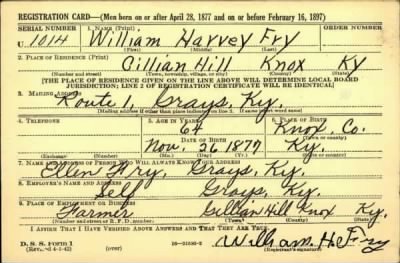 REGISTRATION CARD—(Men born on or after April 28, 1877 and on or before February 16, 1897)
SERIAL NUMBER 1. NAME (Print) ORDER NUMBER
U 1014 William Harvey Fry
(First) (Middle) (Last)
2. PLACE OF RESIDENCE (Print)
Gillian Hill Knox Ky
(Number and street) (Town, township, village, or city) (County) (State)
[THE PLACE OF RESIDENCE GIVEN ON THE LINE ABOVE WILL DETERMINE LOCAL BOARD
JURISDICTION; LINE 2 OF REGISTRATION CERTIFICATE WILL BE IDENTICAL]
3. MAILING ADDRESS
Route 1, Grays, Ky.
[Mailing address if other than place indicated on line 2. If same insert word same]
4. TELEPHONE 5. AGE IN YEARS 6. PLACE OF BIRTH
64 Knox, Co.
DATE OF BIRTH (Town or county)
Nov. 26 1877 Ky.
(Exchange) (Number) (Mo.) (Day) (Yr.) (State or country)
7. NAME AND ADDRESS OF PERSON WHO WILL ALWAYS KNOW YOUR ADDRESS
Ellen Fry, Grays, Ky.
8. EMPLOYER'S NAME AND ADDRESS
Self Grays, Ky.
9. PLACE OF EMPLOYMENT OR BUSINESS
Farmer Gillian Hill Knox Ky.
(Number and street or R. F. D. number) (Town) (County) (State)
I AFFIRM THAT I HAVE VERIFIED ABOVE ANSWERS AND THAT THEY ARE TRUE.
D. S. S. Form 1 William H. Fry
(Revised 4-1-42) (over) (Registrant's signature)